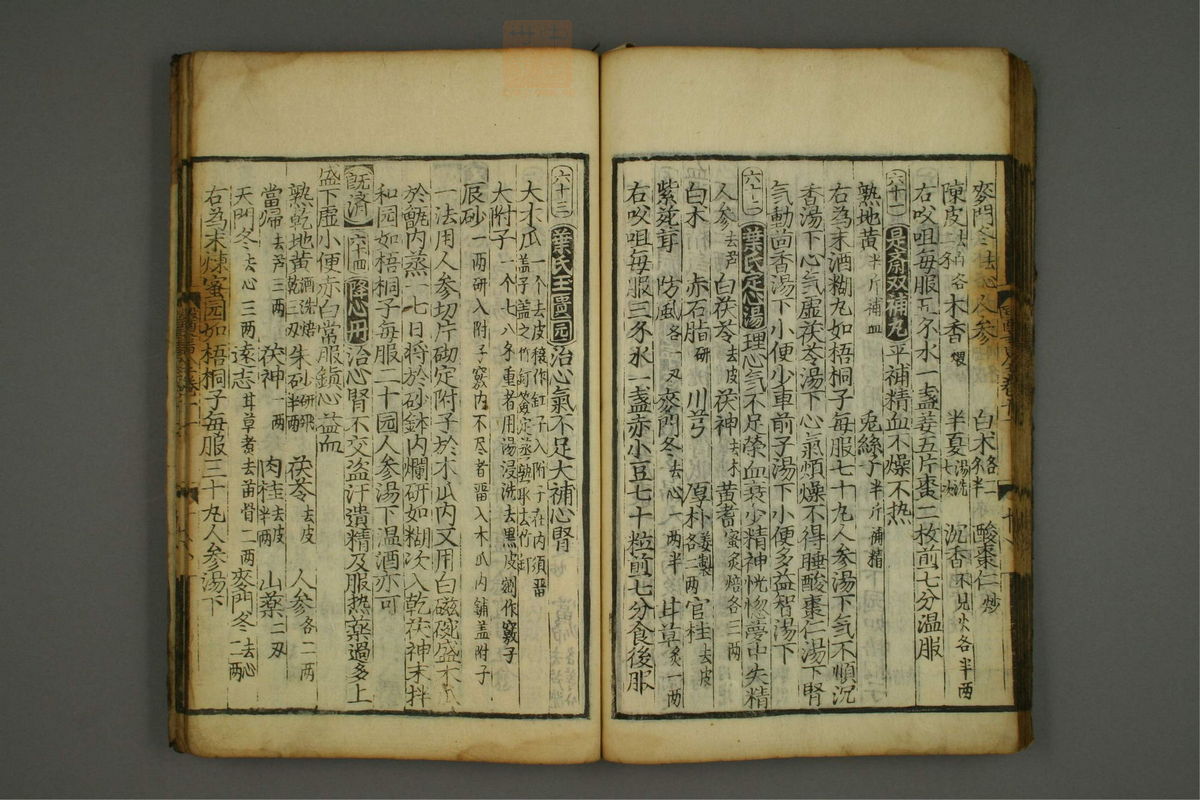 麥門冬去心 人參 白朮各一分半 酸棗仁炒
陳皮 木香煨 半夏湯洗七次 沉香不見火各半兩
右㕮咀每服五分水一盞姜五片棗二枚煎七分溫服
六十一 是斎双補丸 平補精血不燥不热
熟地黄半斤補血 兎絲子半斤補精
右為末酒糊丸如梧桐子每服七十丸人參湯下气不順沉
香湯下心气虛茯苓湯下心氣煩燥不得睡酸棗仁湯下腎
气動茴香湯下小便少車前子湯下小便多益智湯下
六十二 葉氏定心湯 理心气不足榮血衰少精神恍惚夢中失精
人参去芦 白茯苓去皮 茯神去木 黄蓍蜜炙焙各二两
白朮 赤石脂研 川芎 厚朴姜製各二两 官桂去皮
紫莬茸 防風各一刄 麥門冬去心一两半 甘草炙一两
右㕮咀每服三分水一盞赤小豆七十粒煎七分食後服
六十三 葉氏王啚园 治心氣不足大補心腎
大木瓜一个去皮穰作缸子入附子在内須畱盖子盖之竹釘簽定蒸熟取去竹釘
大附子一个七八分重者用湯浸洗去黒皮劄作竅子
辰砂一两研入附子竅内不尽者畱入木瓜内鋪盖附子
一法用人参切片砌定附子於木瓜内又用白磁碗盛木瓜
於甑内蒸一七日将於砂鉢内爛研如糊次入乾茯神末拌
和园如梧桐子每服二十园人参湯下温酒亦可
既济 六十四 降心丹 治心腎不交盗汗遺精及服热藥過多上
盛下虛小便赤白常服鎮心益血
熟乾地黄酒洒焙乾三刄 朱砂研飛半两 茯苓去皮 人參各二两
當帰去芦三两 茯神一两 肉桂去皮半两 山藥二刄
天門冬去心三两 遠志甘草煮去苗骨二两 麥門冬去心二两
右為末煉蜜园如梧桐子每服三十丸人参湯下